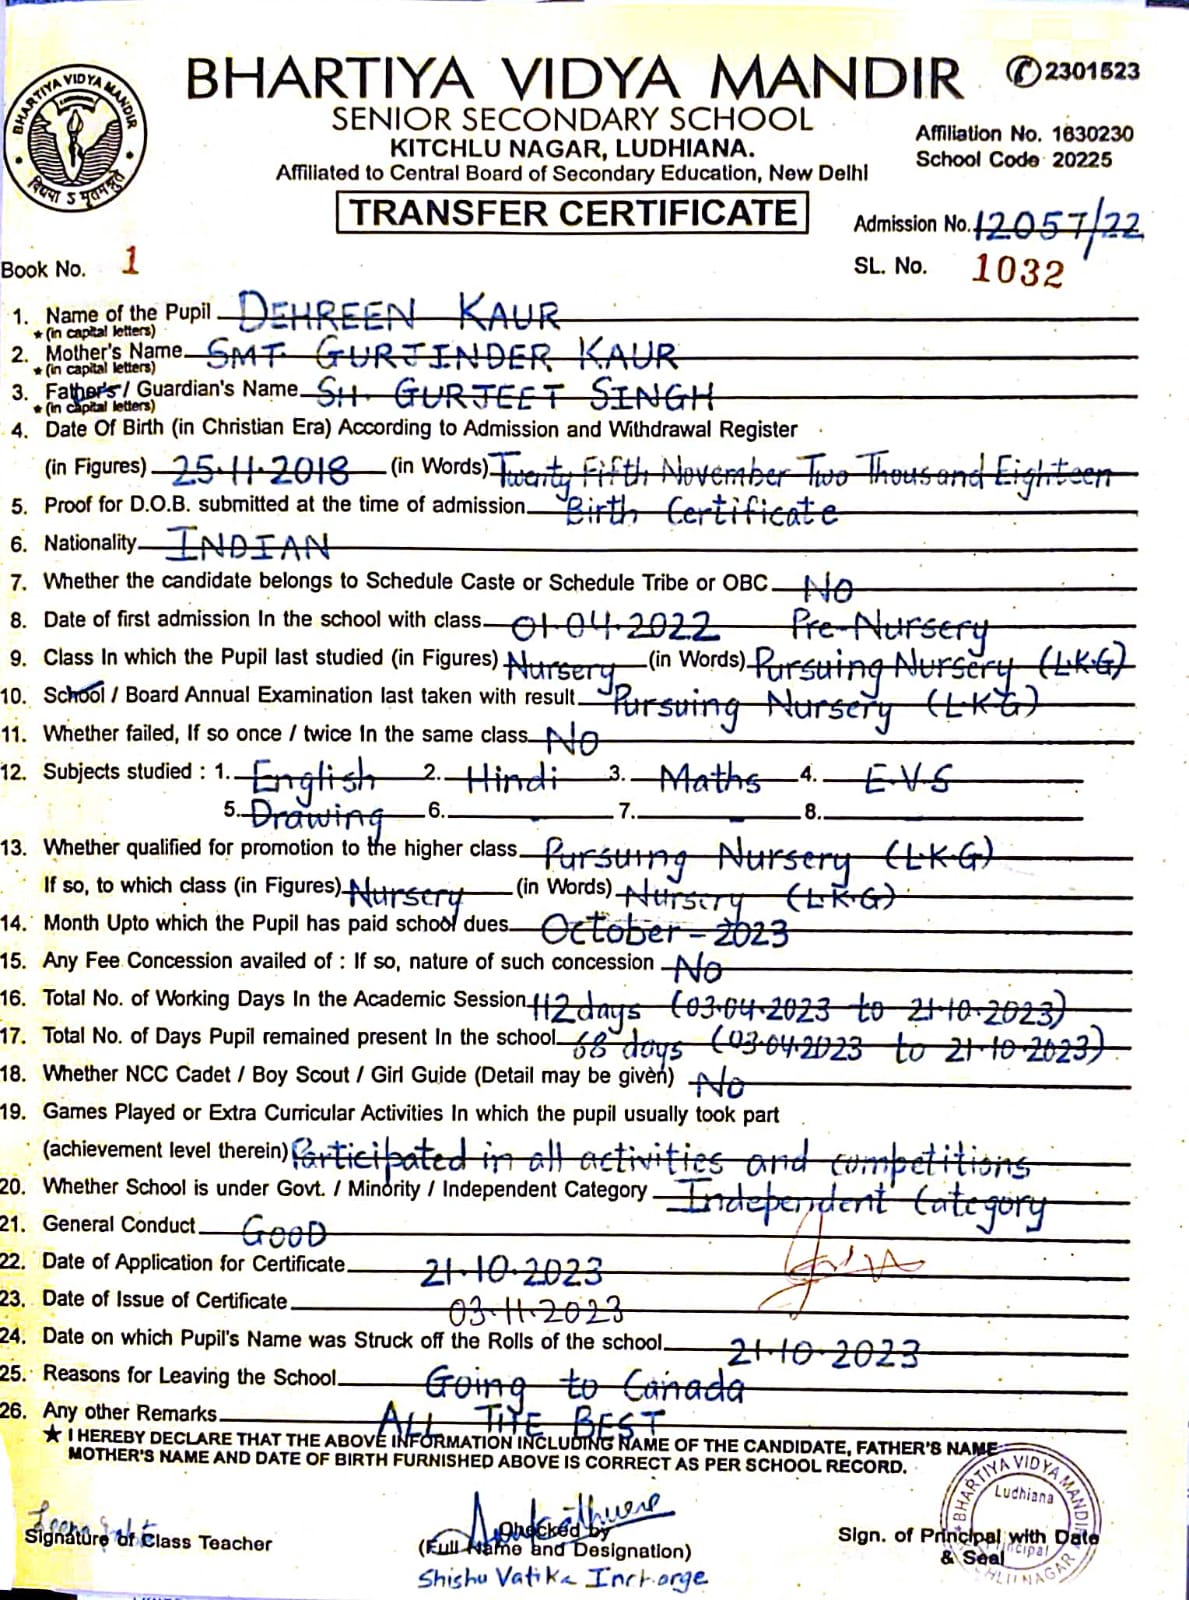 BHARTIYA VIDYA MANDIR
विद्यया ऽ मृतमश्नुते
BHARTIYA VIDYA MANDIR
✆2301523
SENIOR SECONDARY SCHOOL
KITCHLU NAGAR, LUDHIANA.
Affiliated to Central Board of Secondary Education, New Delhi
Affiliation No. 1630230
School Code 20225
TRANSFER CERTIFICATE
Admission No. 12057/22
Book No. 1
SL. No. 1032
1. Name of the Pupil DEHREEN KAUR
★(in capital letters)
2. Mother's Name SMT. GURJINDER KAUR
★(in capital letters)
3. Father's / Guardian's Name SH. GURJEET SINGH
★(in capital letters)
4. Date Of Birth (in Christian Era) According to Admission and Withdrawal Register
(in Figures) 25.11.2018 (in Words) Twenty Fifth November Two Thousand Eighteen
5. Proof for D.O.B. submitted at the time of admission Birth Certificate
6. Nationality INDIAN
7. Whether the candidate belongs to Schedule Caste or Schedule Tribe or OBC No
8. Date of first admission In the school with class 01.04.2022 Pre-Nursery
9. Class In which the Pupil last studied (in Figures) Nursery (in Words) Pursuing Nursery (L.K.G)
10. School / Board Annual Examination last taken with result Pursuing Nursery (L.K.G)
11. Whether failed, If so once / twice In the same class No
12. Subjects studied : 1. English 2. Hindi 3. Maths 4. E.V.S
5. Drawing 6. - 7. - 8.
13. Whether qualified for promotion to the higher class Pursuing Nursery (L.K.G)
If so, to which class (in Figures) Nursery (in Words) Nursery (L.K.G)
14. Month Upto which the Pupil has paid school dues October - 2023
15. Any Fee Concession availed of : If so, nature of such concession No
16. Total No. of Working Days In the Academic Session 112 days (03.04.2023 to 21.10.2023)
17. Total No. of Days Pupil remained present In the school 68 days (03.04.2023 to 21.10.2023)
18. Whether NCC Cadet / Boy Scout / Girl Guide (Detail may be given) No
19. Games Played or Extra Curricular Activities In which the pupil usually took part
(achievement level therein) Participated in all activities and competitions
20. Whether School is under Govt. / Minority / Independent Category Independent Category
21. General Conduct GOOD
22. Date of Application for Certificate 21.10.2023
23. Date of Issue of Certificate 03.11.2023
24. Date on which Pupil's Name was Struck off the Rolls of the school 21.10.2023
25. Reasons for Leaving the School Going to Canada
26. Any other Remarks ALL THE BEST
★ I HEREBY DECLARE THAT THE ABOVE INFORMATION INCLUDING NAME OF THE CANDIDATE, FATHER'S NAME
MOTHER'S NAME AND DATE OF BIRTH FURNISHED ABOVE IS CORRECT AS PER SCHOOL RECORD.
BHARTIYA VIDYA MANDIR
Ludhiana
Principal
Signature of Class Teacher
Checked by
(Full Name and Designation)
Sign. of Principal with Date
& Seal
Shishu Vatika Incharge